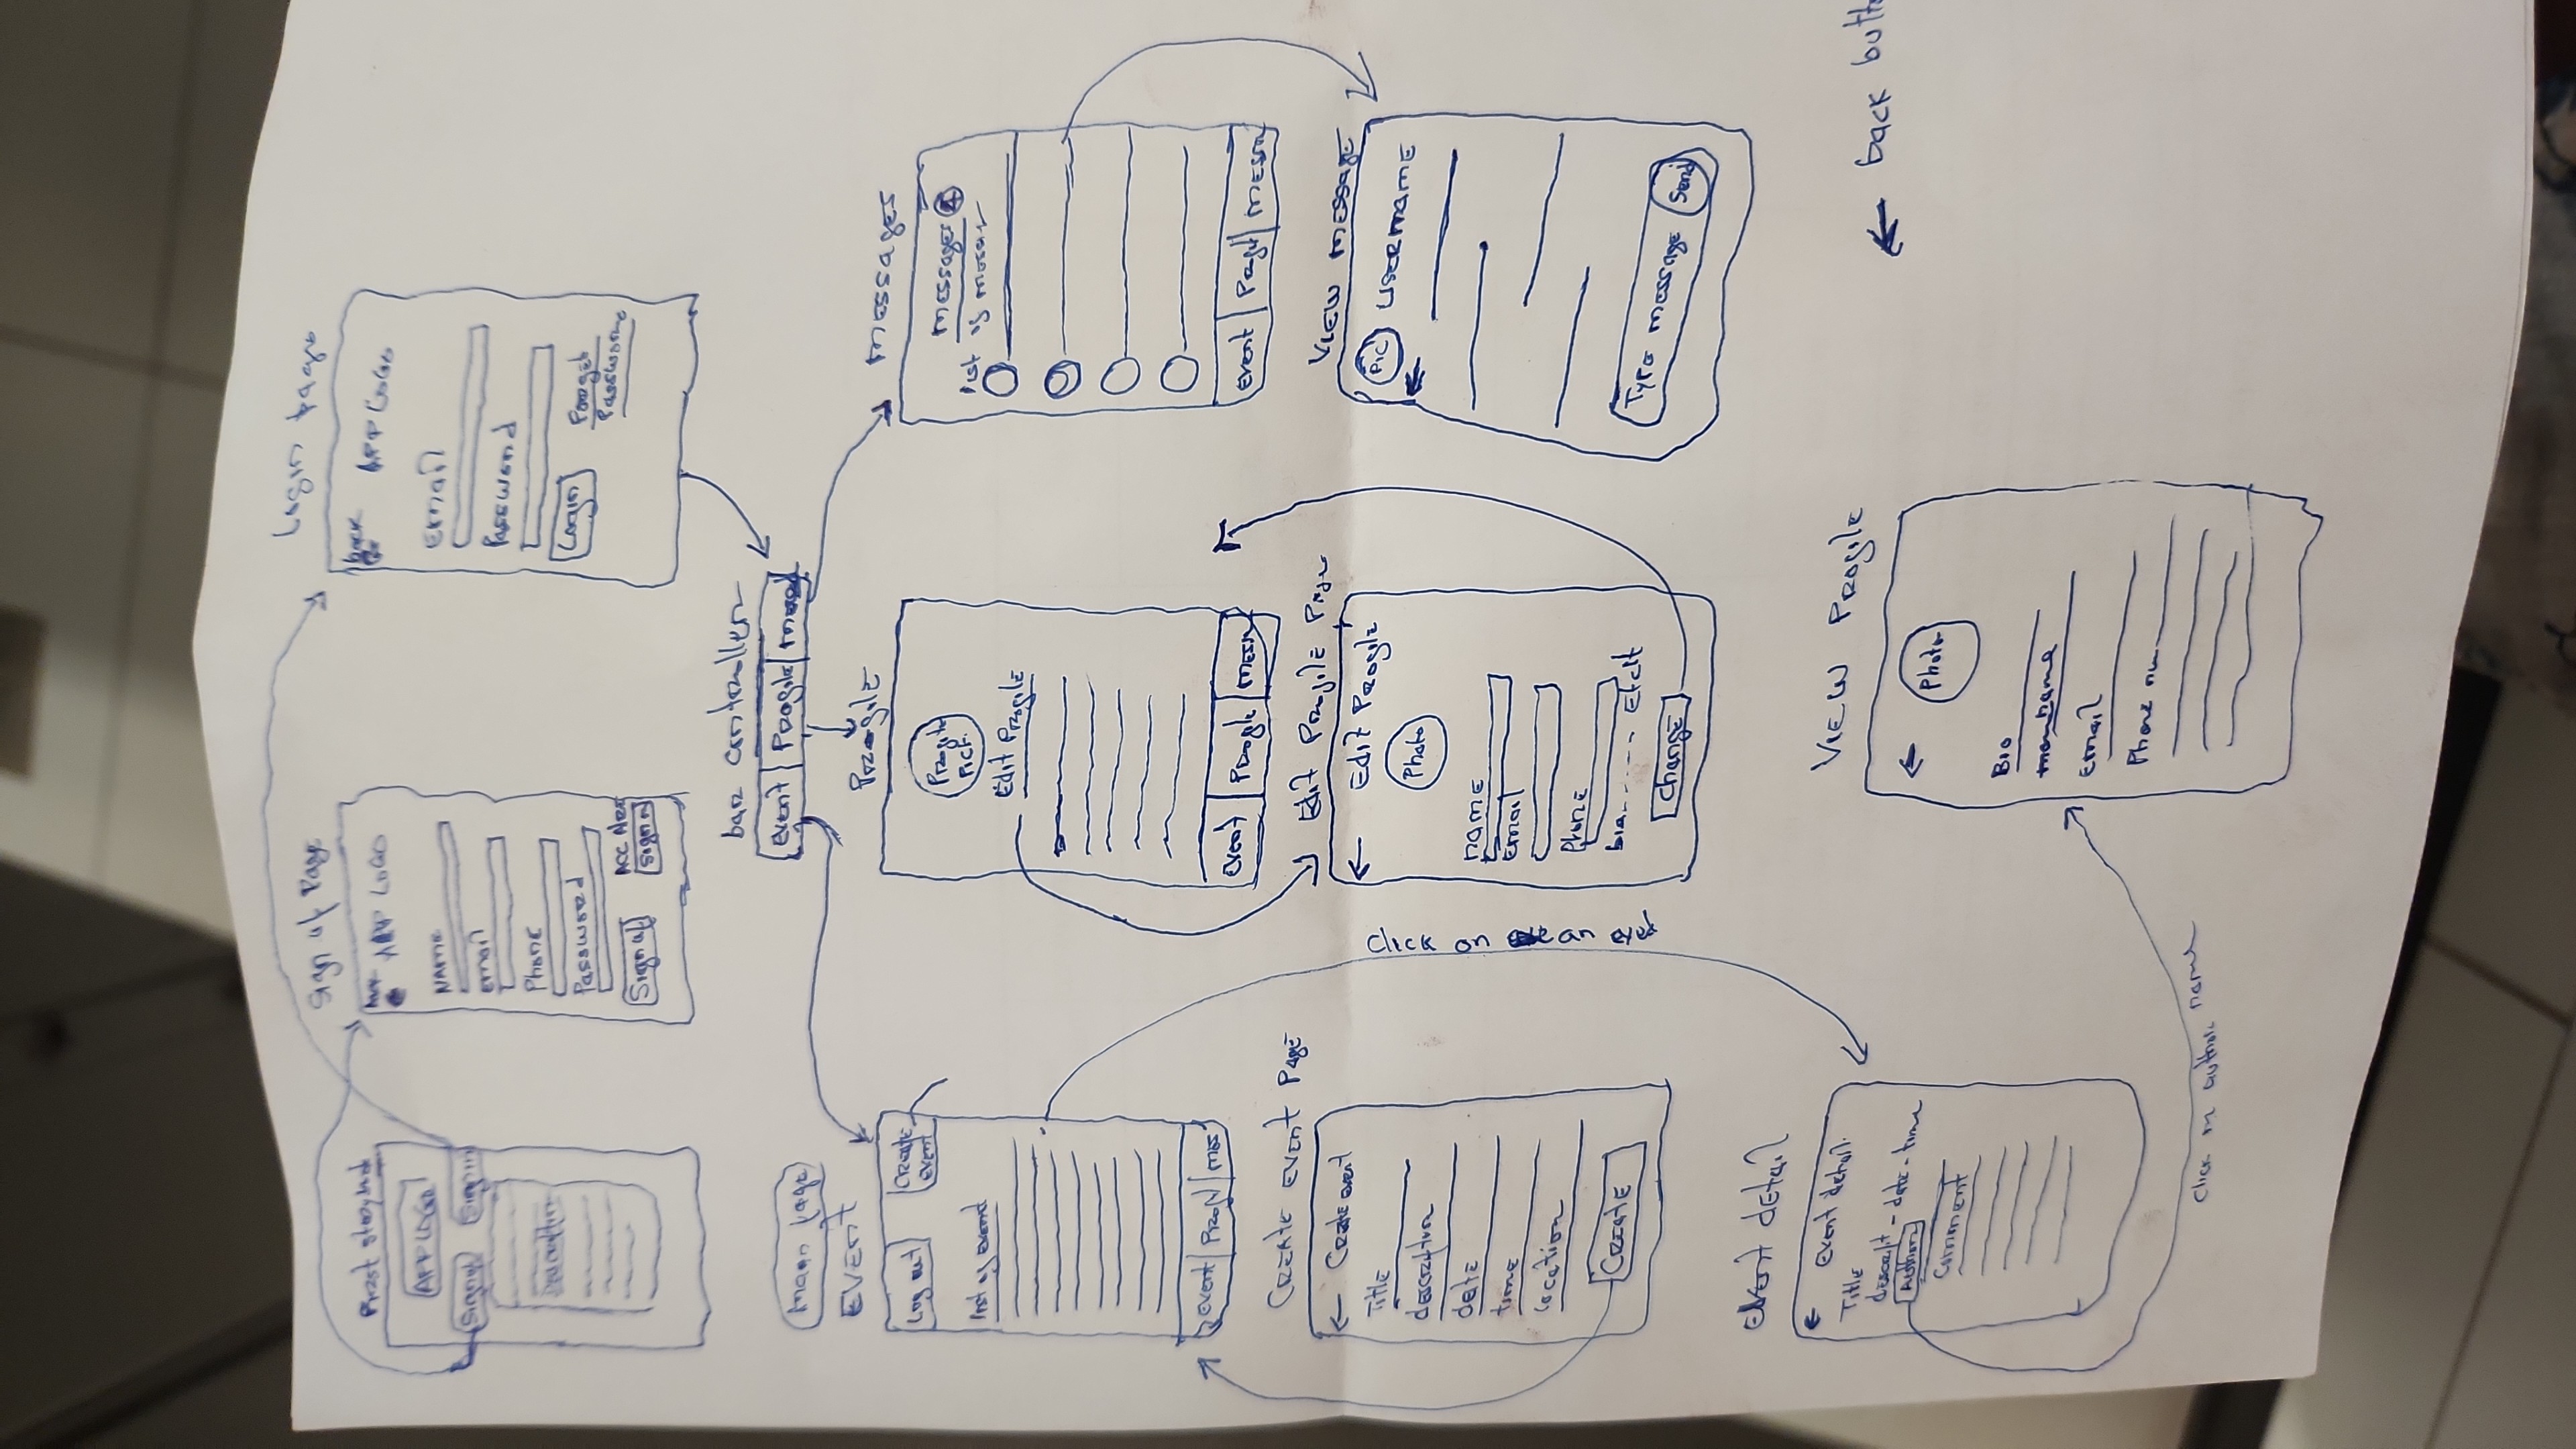 Sign up Page
Login page
First storyboard
APP LOGO
Sign up
Sign in
Description
back
APP LOGO
NAME
email
Phone
Password
Sign up
Sign in
back
APP LOGO
Email
Password
Login
Forget
Password
bar controller
Event
Profile
main page
EVENT
Log out
CREATE
EVENT
list of event
Event
Profil
mes
Profile
Profile
PICT.
Edit Profile
Event
Profile
messa
messages
messages
list of messa
Event
Profil
messa
CREATE EVENT PAGE
← Create event
Title
description
date
time
location
CREATE
Click on an event
Edit Profile Page
← Edit Profile
Photo
name
Email
Phone
bio------
Change
VIEW message
PIC
username
←
Type message
Send
Event detail
← Event detail
Title
descript - date - time
Author
Comment
Click on author name
VIEW Profile
←
Photo
Bio
name
Email
Phone num
← back butto